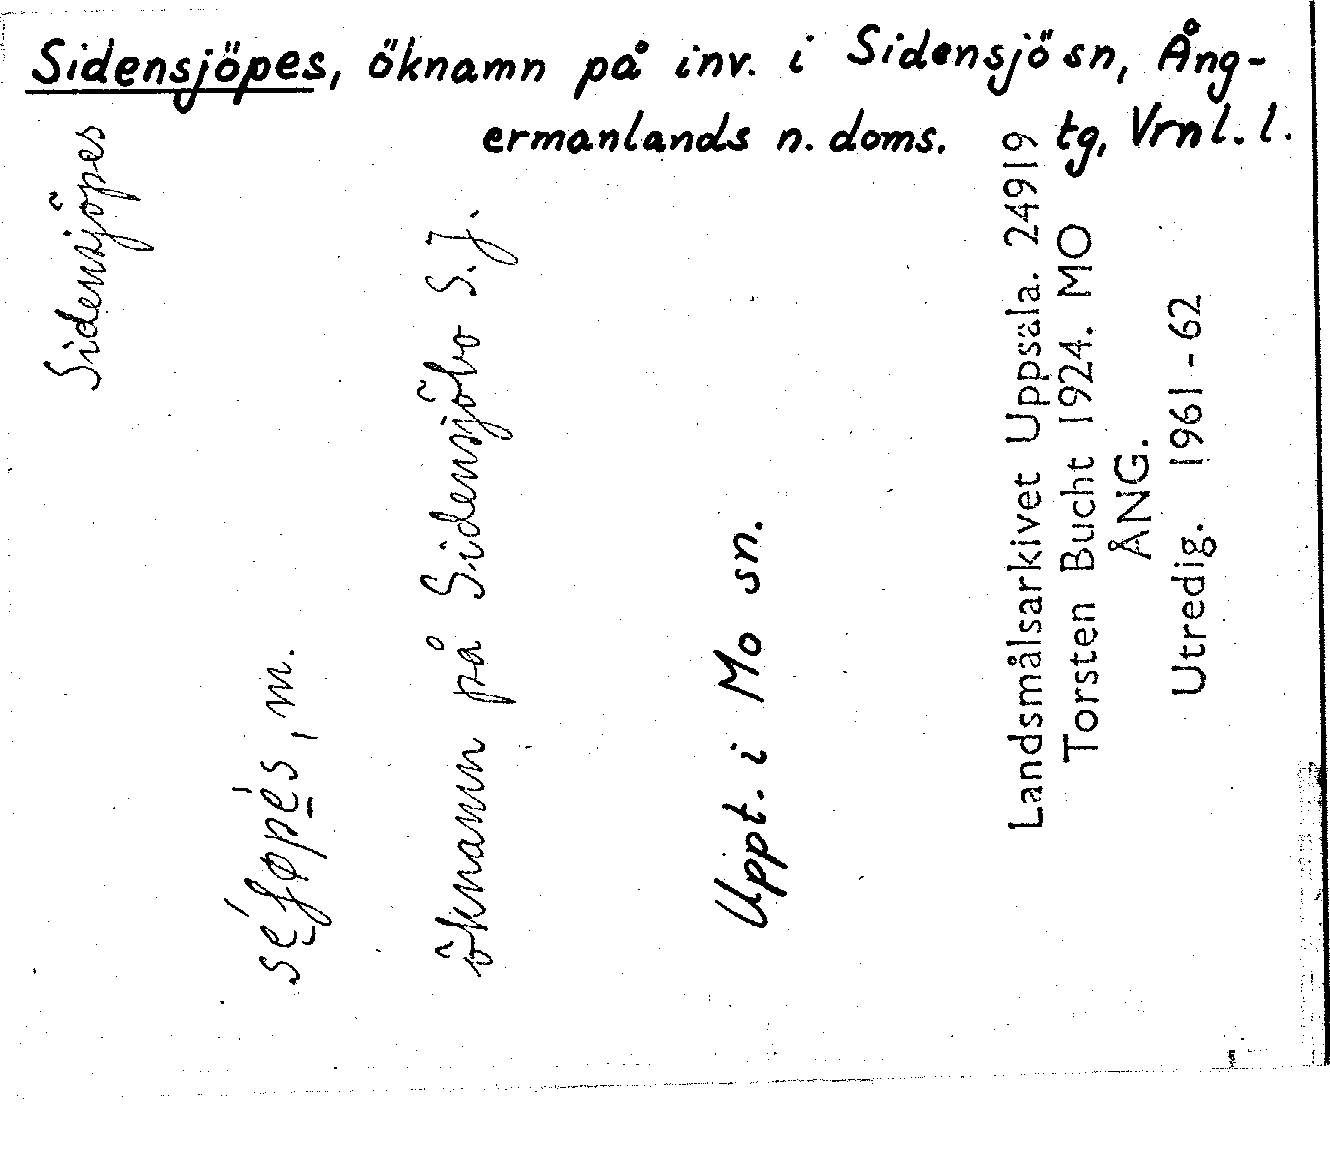 Sidensjöpes, öknamn på inv. i Sidensjö sn, Ång-
ermanlands n. doms. tg, Vrnl. l.
Sidensjöpes
m.
öknamn på Sidensjöbo S.J.
Uppt. i Mo sn.
Landsmålsarkivet Uppsala. 24919
Torsten Bucht 1924. MO
ÅNG.
Utredig. 1961-62